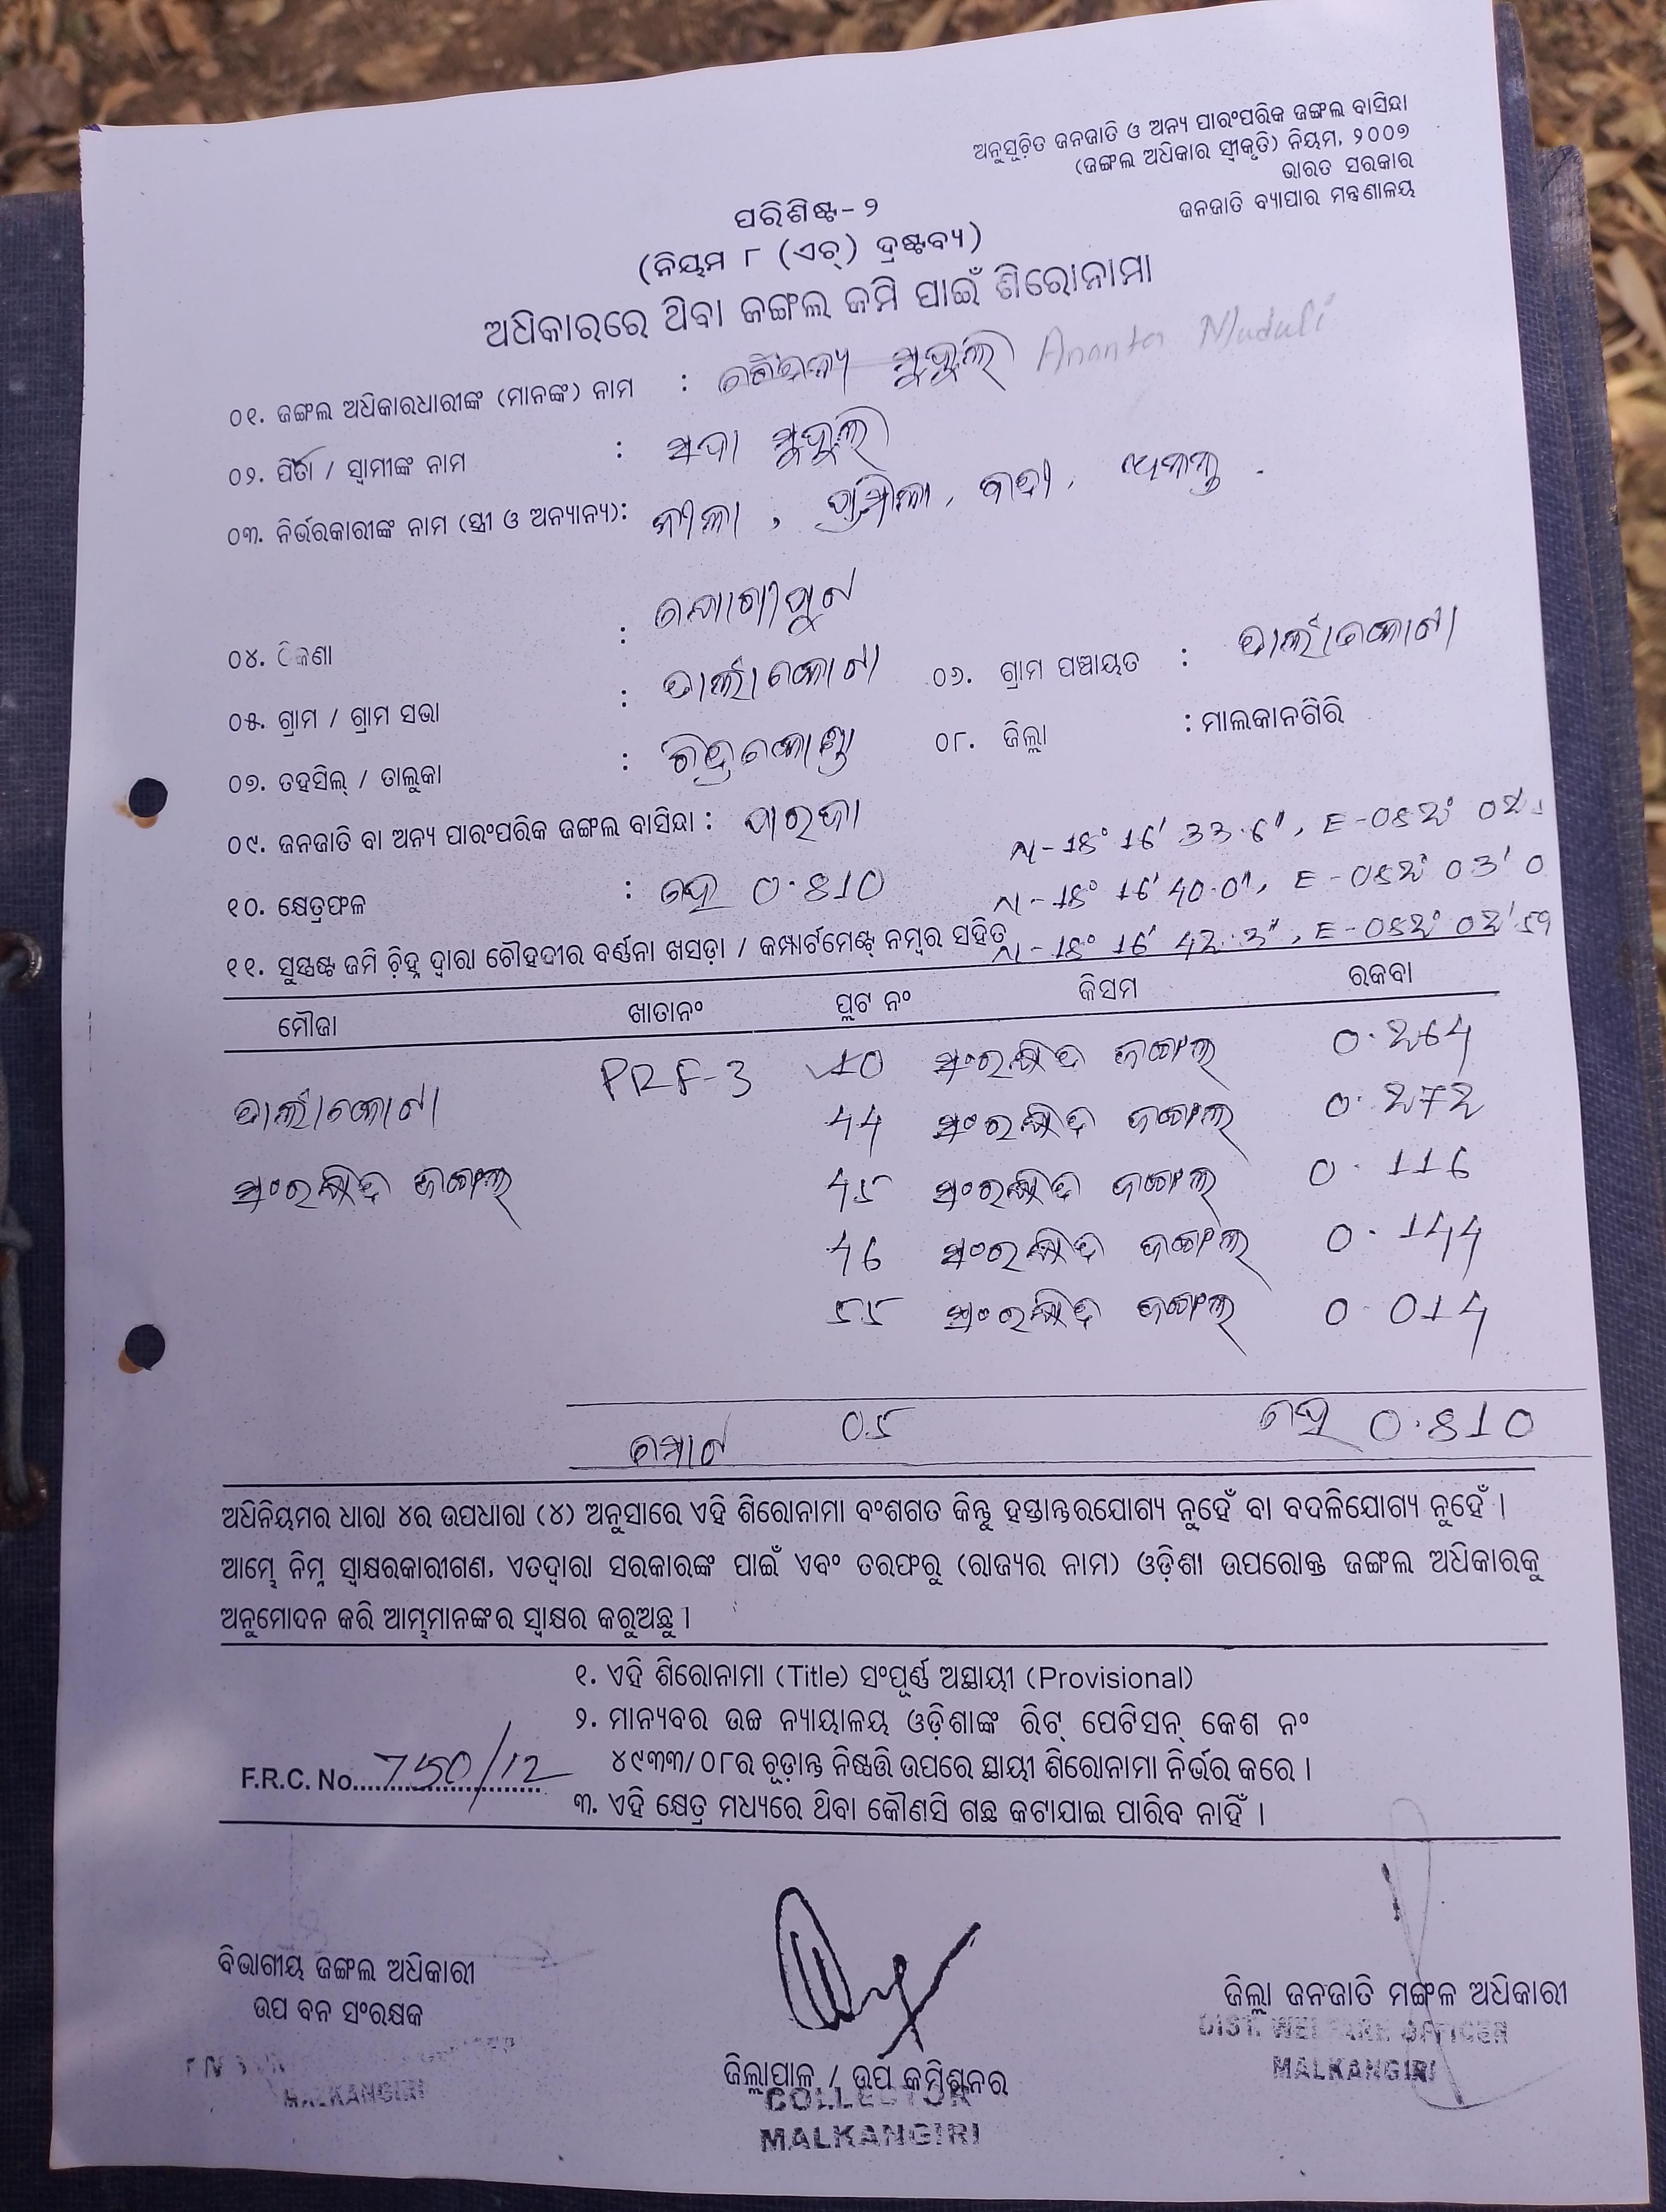 ଅନୁସୂଚିତ ଜନଜାତି ଓ ଅନ୍ୟ ପାରଂପରିକ ଜଙ୍ଗଲ ବାସିନ୍ଦା
(ଜଙ୍ଗଲ ଅଧିକାର ସ୍ୱୀକୃତି) ନିୟମ, ୨୦୦୭
ଭାରତ ସରକାର
ଜନଜାତି ବ୍ୟାପାର ମନ୍ତ୍ରଣାଳୟ
ପରିଶିଷ୍ଟ-୨
(ନିୟମ ୮ (ଏଚ୍) ଦ୍ରଷ୍ଟବ୍ୟ)
ଅଧିକାରରେ ଥିବା ଜଙ୍ଗଲ ଜମି ପାଇଁ ଶିରୋନାମା
୦୧. ଜଙ୍ଗଲ ଅଧିକାରଧାରୀଙ୍କ (ମାନଙ୍କ) ନାମ : ଚୈତନ୍ୟ ମୁଦୁଲି Ananta Muduli
୦୨. ପିତା / ସ୍ୱାମୀଙ୍କ ନାମ : ସଦା ମୁଦୁଲି
୦୩. ନିର୍ଭରକାରୀଙ୍କ ନାମ (ସ୍ତ୍ରୀ ଓ ଅନ୍ୟାନ୍ୟ): ନୀଳା, ପ୍ରମିଳା,
୦୪. ଠିକଣା :
୦୫. ଗ୍ରାମ / ଗ୍ରାମ ସଭା : ୦୬. ଗ୍ରାମ ପଞ୍ଚାୟତ :
୦୭. ତହସିଲ୍ / ତାଲୁକା : ଚିତ୍ରକୋଣ୍ଡା ୦୮. ଜିଲ୍ଲା : ମାଲକାନଗିରି
୦୯. ଜନଜାତି ବା ଅନ୍ୟ ପାରଂପରିକ ଜଙ୍ଗଲ ବାସିନ୍ଦା : ପାରଜା
N-18° 16' 33.6", E-082° 02'
୧୦. କ୍ଷେତ୍ରଫଳ : ହେ 0.810 N-18° 16' 40.0", E-082° 03' 0
୧୧. ସୁସ୍ପଷ୍ଟ ଜମି ଚିହ୍ନ ଦ୍ୱାରା ଚୌହଦୀର ବର୍ଣ୍ଣନା ଖସଡ଼ା / କମ୍ପାର୍ଟମେଣ୍ଟ୍ ନମ୍ବର ସହିତ N-18° 16' 42.3", E-082° 02' 59
ମୌଜା ଖାତାନଂ ପ୍ଲଟ ନଂ କିସମ ରକବା
PRF-3 40 ସଂରକ୍ଷିତ ଜଙ୍ଗଲ 0.264
44 ସଂରକ୍ଷିତ ଜଙ୍ଗଲ 0.272
ସଂରକ୍ଷିତ ଜଙ୍ଗଲ 45 ସଂରକ୍ଷିତ ଜଙ୍ଗଲ 0.116
46 ସଂରକ୍ଷିତ ଜଙ୍ଗଲ 0.144
55 ସଂରକ୍ଷିତ ଜଙ୍ଗଲ 0.014
ମୋଟ 05 ହେ 0.810
ଅଧିନିୟମର ଧାରା ୪ର ଉପଧାରା (୪) ଅନୁସାରେ ଏହି ଶିରୋନାମା ବଂଶଗତ କିନ୍ତୁ ହସ୍ତାନ୍ତରଯୋଗ୍ୟ ନୁହେଁ ବା ବଦଳିଯୋଗ୍ୟ ନୁହେଁ ।
ଆମ୍ଭେ ନିମ୍ନ ସ୍ୱାକ୍ଷରକାରୀଗଣ, ଏତଦ୍ୱାରା ସରକାରଙ୍କ ପାଇଁ ଏବଂ ତରଫରୁ (ରାଜ୍ୟର ନାମ) ଓଡ଼ିଶା ଉପରୋକ୍ତ ଜଙ୍ଗଲ ଅଧିକାରକୁ
ଅନୁମୋଦନ କରି ଆମ୍ଭମାନଙ୍କର ସ୍ୱାକ୍ଷର କରୁଅଛୁ ।
୧. ଏହି ଶିରୋନାମା (Title) ସଂପୂର୍ଣ୍ଣ ଅସ୍ଥାୟୀ (Provisional)
୨. ମାନ୍ୟବର ଉଚ୍ଚ ନ୍ୟାୟାଳୟ ଓଡ଼ିଶାଙ୍କ ରିଟ୍ ପେଟିସନ୍ କେଶ ନଂ
୪୯୩୩/୦୮ର ଚୂଡ଼ାନ୍ତ ନିଷ୍ପତ୍ତି ଉପରେ ସ୍ଥାୟୀ ଶିରୋନାମା ନିର୍ଭର କରେ ।
F.R.C. No. 750/12
୩. ଏହି କ୍ଷେତ୍ର ମଧ୍ୟରେ ଥିବା କୌଣସି ଗଛ କଟାଯାଇ ପାରିବ ନାହିଁ ।
ବିଭାଗୀୟ ଜଙ୍ଗଲ ଅଧିକାରୀ
ଉପ ବନ ସଂରକ୍ଷକ
MALKANGIRI
ଜିଲ୍ଲାପାଳ / ଉପ କମିଶ୍ନର
COLLECTOR
MALKANGIRI
ଜିଲ୍ଲା ଜନଜାତି ମଙ୍ଗଳ ଅଧିକାରୀ
DIST. WELFARE OFFICER
MALKANGIRI